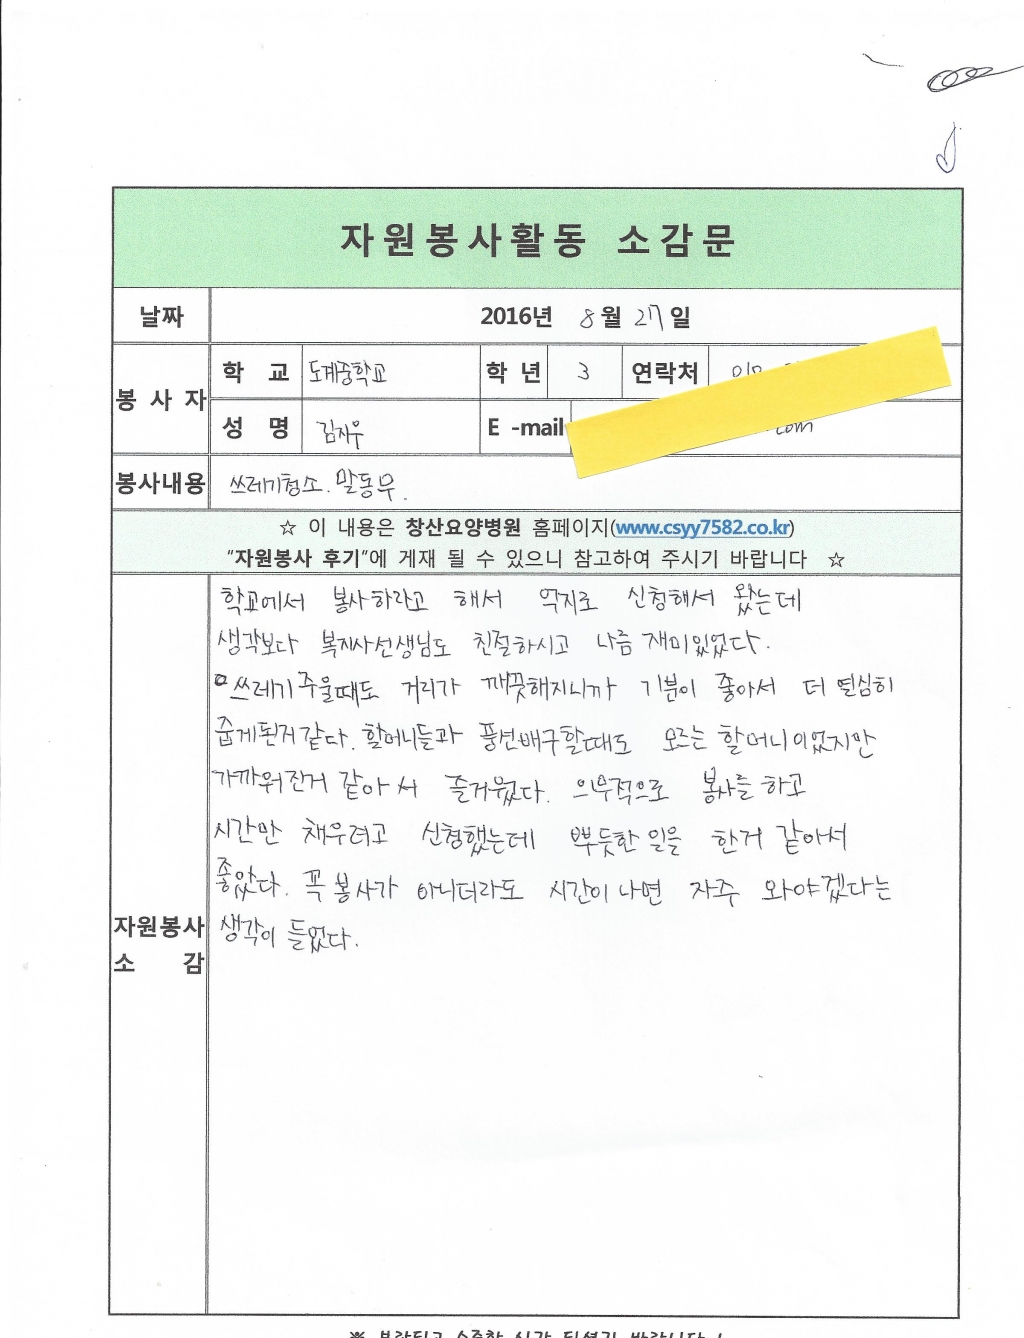 자원봉사활동 소감문
날짜 2016년 8월 27일
봉사자
학 교 도계중학교 학 년 3 연락처 010
성 명 김지우 E -mail .com
봉사내용 쓰레기청소. 말동무.
☆ 이 내용은 창산요양병원 홈페이지(www.csyy7582.co.kr)
"자원봉사 후기"에 게재 될 수 있으니 참고하여 주시기 바랍니다 ☆
자원봉사
소 감
학교에서 봉사하라고 해서 억지로 신청해서 왔는데
생각보다 복지사선생님도 친절하시고 나름 재미있었다.
쓰레기 주울때도 거리가 깨끗해지니까 기분이 좋아서 더 열심히
줍게된거같다. 할머니들과 풍선배구할때도 모르는 할머니이었지만
가까워진거 같아서 즐거웠다. 의무적으로 봉사를 하고
시간만 채우려고 신청했는데 뿌듯한 일을 한거 같아서
좋았다. 꼭 봉사가 아니더라도 시간이 나면 자주 와야겠다는
생각이 들었다.